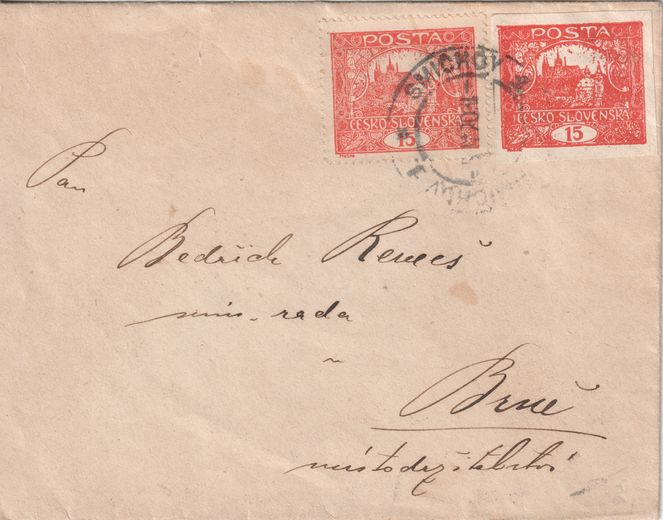 POSTA
ČESKO-SLOVENSKÁ
15
POSTA
ČESKO-SLOVENSKÁ
15
SMÍCHOV
Pan
Bedřich Remeš
min. rada
~
Brně
místodržitelství